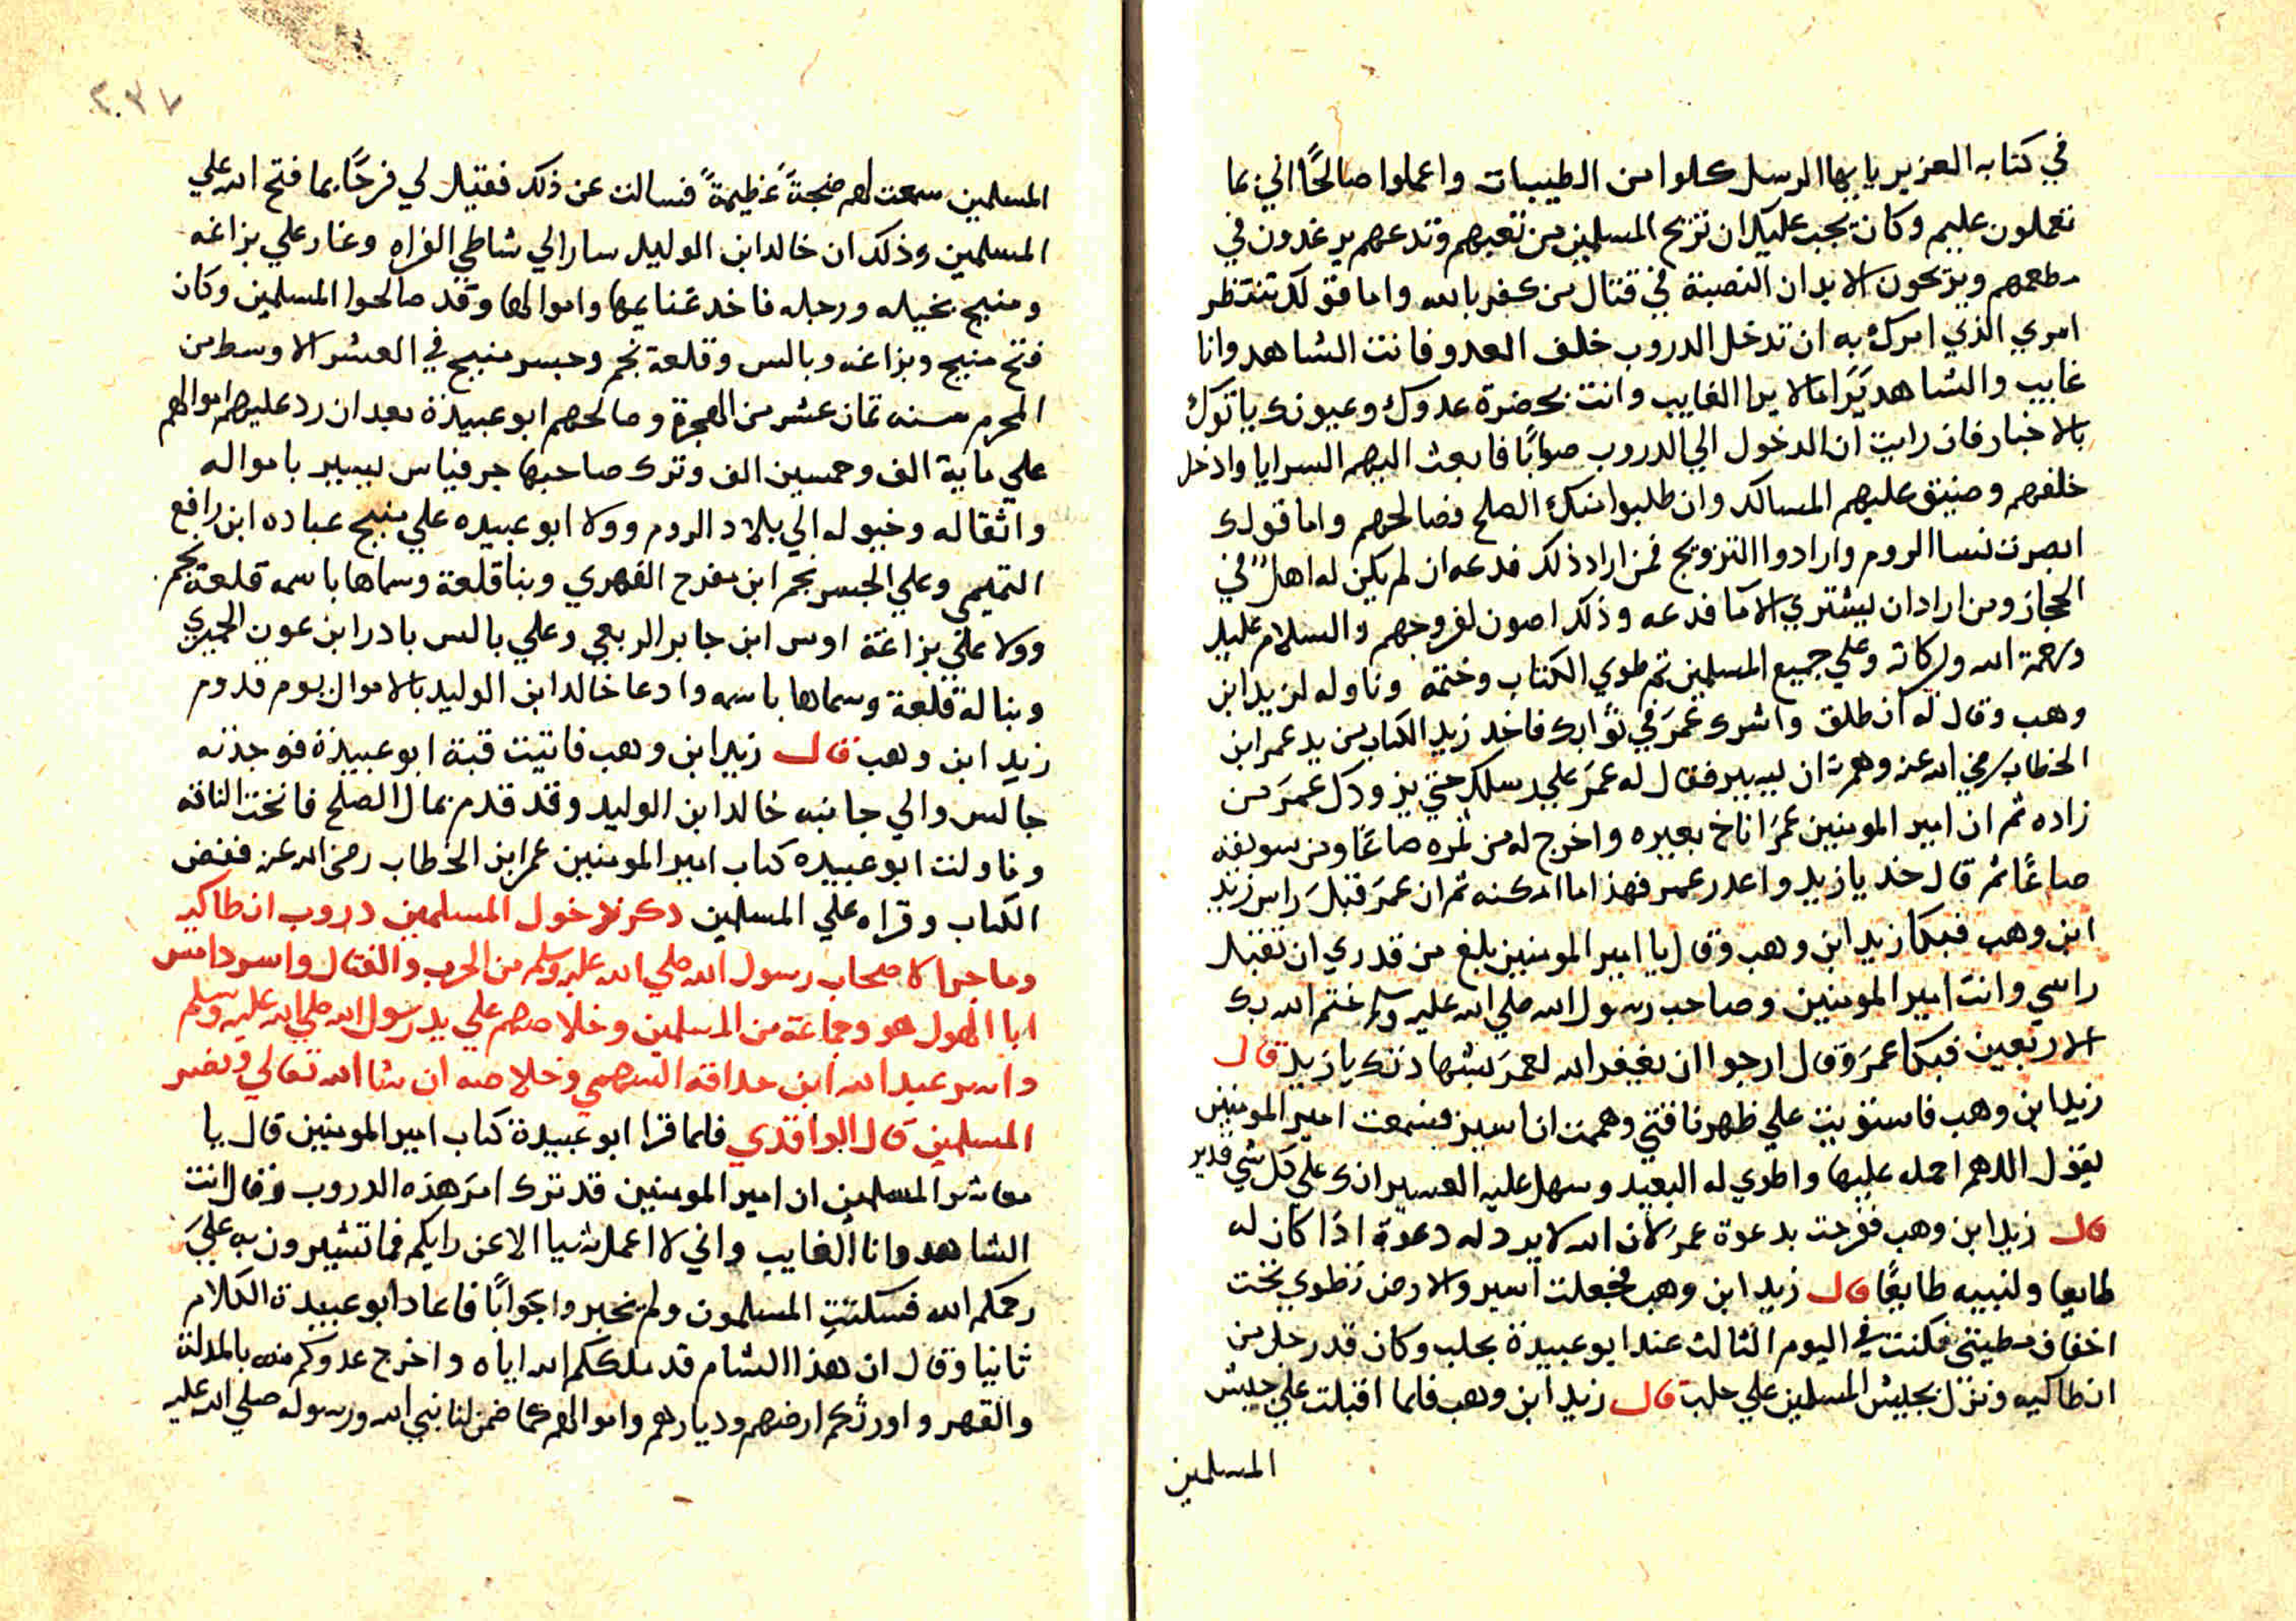 في كتابه العزيز يا يها الرسل كلوا من الطيبات واعملوا صالحًا اني بما
تعملون عليم وكان يجب عليك ان تريح المسلمين من تعبهم وتدعهم يرغدون في
مطعمهم ويريحون الابدان النصبة في قتال من كفر بالله واما قولك تنتظر
امري الذي امرك به ان تدخل الدروب خلف العدو فانت الشاهد وانا
غايب والشاهد يَرَا مالا يرا الغايب وانت بحضرة عدوك وعيونك ياتوك
بالاخبار فان رايت ان الدخول الي الدروب صوابًا فابعث اليهم السرايا وادخل
خلفهم وضيق عليهم المسالك وان طلبوا منك الصلح فصالحهم واما قولك
ابصرت نسا الروم وارادوا التزويج فمن اراد ذلك فدعه ان لم يكن له اهلٌ في
الحجاز ومن اراد ان يشتري الاما فدعه وذلك اصون لفروجهم والسلام عليك
ورحمة الله وبركاته وعلي جميع المسلمين ثم طوي الكتاب وختمه وناوله لزيد ابن
وهب وقال له انطلق واشرك عمرَ في ثوابك فاخد زيد الكتاب من يد عمر ابن
الخطاب رضي الله عنه وهمَّ ان يسير فقال له عمرَ علي رسلك حتي يزودك عمرَ من
زاده ثم ان امير المومنين عمرَ اناخ بعيره واخرج له من تمره صاعًا ومن سويقه
صاعًا ثم قال خد يا زيد واعدر عمر فهذا ما امكنه ثم ان عمرَ قبلَ راس زيد
ابن وهب فبكا زيد ابن وهب وقال يا امير المومنين بلغ من قدري ان تقبل
راسي وانت امير المومنين وصاحب رسول الله صلي الله عليه وسلم ختم الله بك
الاربعين فبكا عمرَ وقال ارجوا ان يغفر الله لعمرَ بشهادتك يا زيد قال
زيد ابن وهب فاستويت علي ظهر ناقتي وهممت ان اسير فسمعت امير المومنين
يقول اللهم احمله عليها واطوي له البعيد وسهل عليه العسير انك علي كل شي قدير
قال زيد ابن وهب ففرحت بدعوة عمرَ لان الله لا يرد له دعوة اذا كان له
طايعا ولنبيه طايعًا قال زيد ابن وهب فجعلت اسير والارض تطوي تحت
اخفاف مطيتي فكنت في اليوم الثالث عند ابو عبيدة بحلب وكان قد رحل من
انطاكيه ونزل بجيش المسلمين علي حلب قال زيد ابن وهب فلما اقبلت علي جيش
المسلمين
٢٣٧
المسلمين سمعت لهم ضجةً عظيمةً فسالت عن ذلك فقيل لي فرحًا بما فتح الله علي
المسلمين وذلك ان خالد ابن الوليد سار الي شاطي الفراه وغار علي بزاغه
ومنبج بخيله ورجله فاخد غنايمها واموالها وقد صالحوا المسلمين وكان
فتح منبج وبزاغه وبالس وقلعة نجم وجسر منبج في العشر الاوسط من
المحرم سنه ثمان عشر من الهجرة وصالحهم ابو عبيدة بعد ان رد عليهم اموالهم
علي ماية الف وخمسين الف وترك صاحبها جرفياس يسير باموالـه
واثقاله وخيوله الي بلاد الروم وولا ابو عبيده علي منبج عباده ابن رافع
التميمي وعلي الجسر نجم ابن مفرح الفهري وبنا قلعة وسماها باسمه قلعة نجم
وولا علي بزاغة اوس ابن جابر الربعي وعلي بالس بادر ابن عون الحميري
وبنا له قلعة وسماها باسمه وادعا خالد ابن الوليد بالاموال يوم قدوم
زيد ابن وهب قال زيد ابن وهب فاتيت قبة ابو عبيدة فوجدته
جالس والي جانبه خالد ابن الوليد وقد قدم بمال الصلح فانخت الناقه
وناولت ابو عبيده كتاب امير المومنين عمر ابن الخطاب رضي الله عنه ففض
الكتاب وقراه علي المسلمين ذكر دخول المسلمين دروب انطاكيه
وما جرا لاصحاب رسول الله صلي الله عليه وسلم من الحرب والقتال واسر دامس
ابا الهول هو وجماعة من المسلمين وخلاصهم علي يد رسول الله صلي الله عليه وسلم
واسر عبد الله ابن حدافة السهمي وخلاصه ان شا الله تعالي ونصر
المسلمين قال الواقدي فلما قرا ابو عبيدة كتاب امير المومنين قال يا
معاشر المسلمين ان امير المومنين قد ترك امرَ هذه الدروب وقال انت
الشاهد وانا الغايب واني لا اعمل شيا الا عن رايكم فما تشيرون به عليَ
رحمكم الله فسكتت المسلمون ولم يخبروا جوابًا فاعاد ابو عبيدة الكلام
ثانيا وقال ان هذا الشام قد ملككم الله اياه واخرج عدوكم منه بالمدلة
والقهر واورثكم ارضهم وديارهم واموالهم كما ضمن لنا نبي الله ورسوله صلي الله عليه